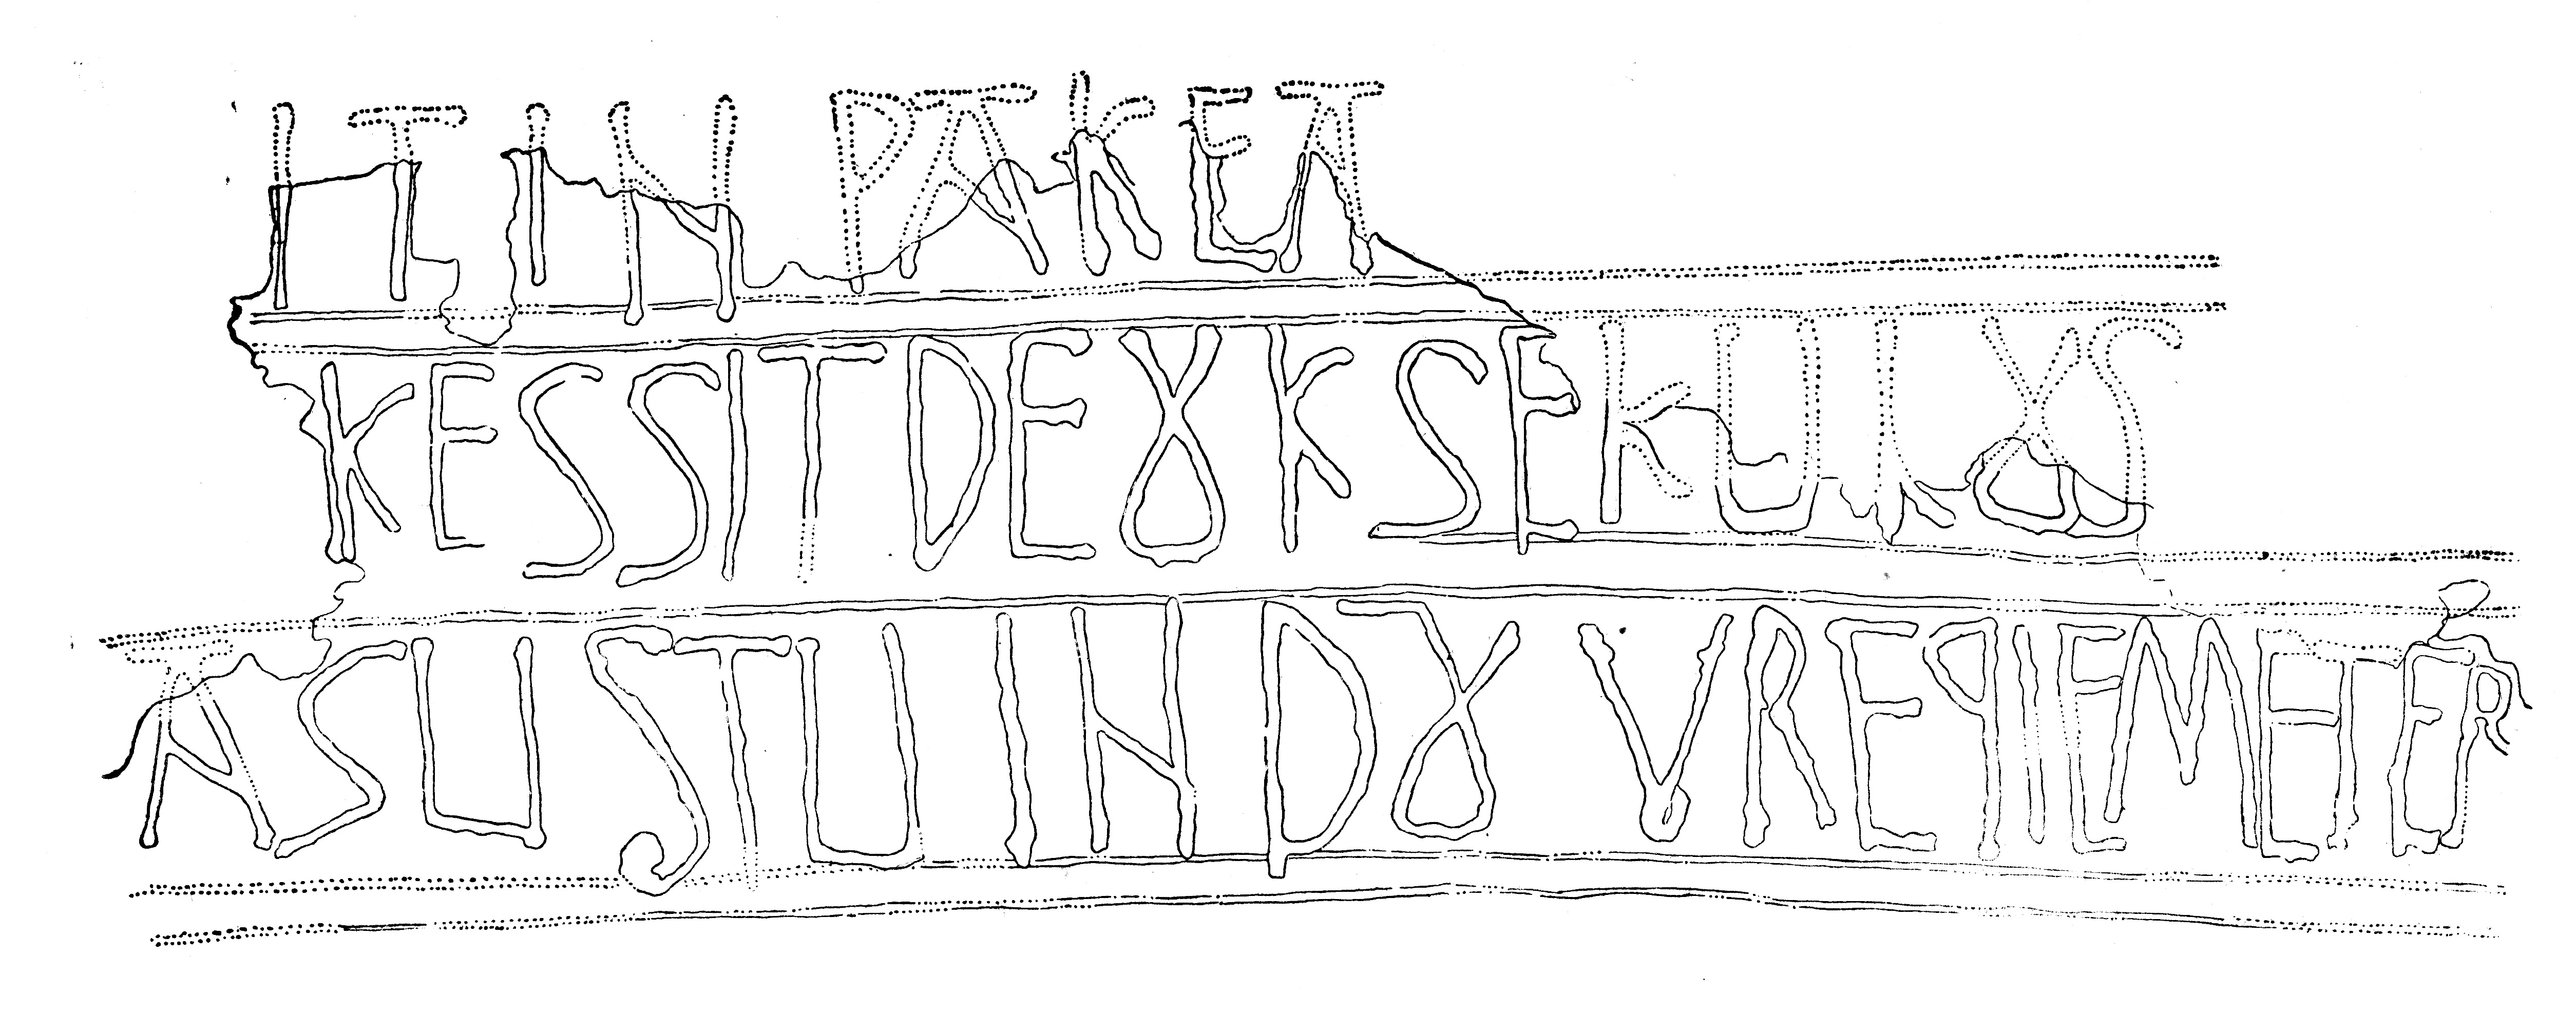 IT IN PAKE A
KESSIT DE ȣK SEKULȣS
ASUSTU IN Dȣ V REQIEM ETER